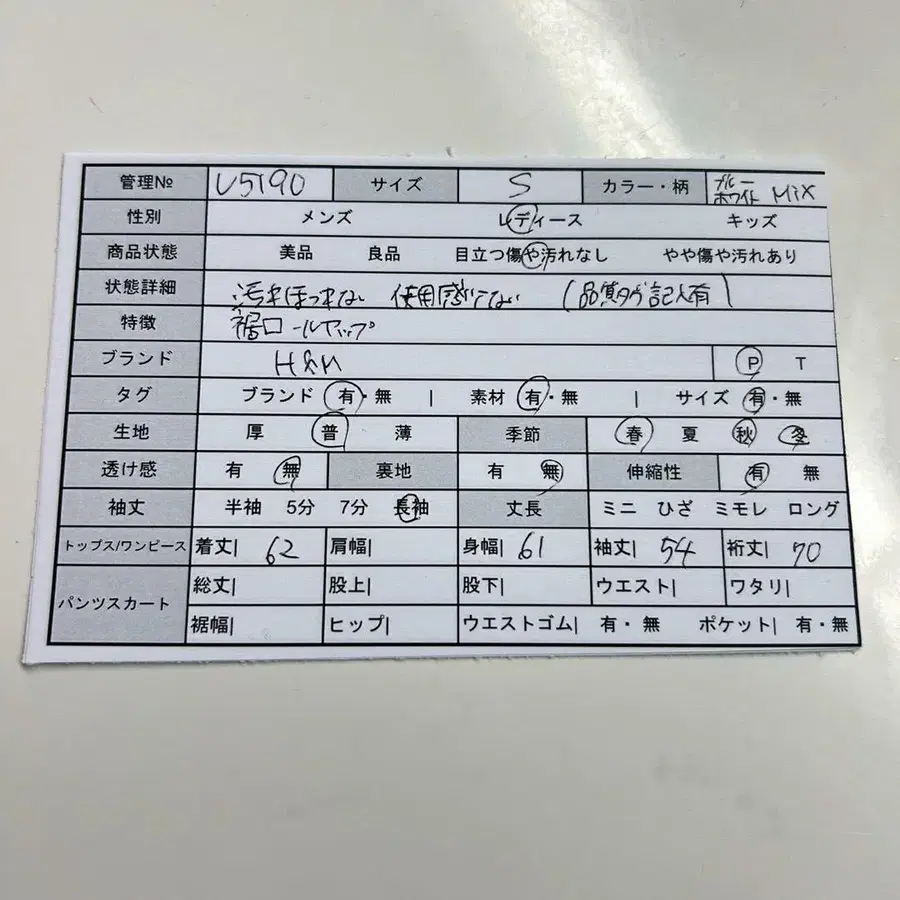 管理№ U5190 サイズ S カラー・柄 ブルー ホワイト MIX
性別 メンズ レディース キッズ
商品状態 美品 良品 目立つ傷や汚れなし やや傷や汚れあり
状態詳細 汚れほつれない 使用感いてない (品質タグ記入有)
特徴 裾ロールアップ
ブランド H&M P T
タグ ブランド 有・無 | 素材 有・無 | サイズ 有・無
生地 厚 普 薄 季節 春 夏 秋 冬
透け感 有 無 裏地 有 無 伸縮性 有 無
袖丈 半袖 5分 7分 長袖 丈長 ミニ ひざ ミモレ ロング
トップス/ワンピース 着丈| 62 肩幅| 身幅| 61 袖丈| 54 裄丈| 70
パンツスカート 総丈| 股上| 股下| ウエスト| ワタリ|
裾幅| ヒップ| ウエストゴム| 有・無 ポケット| 有・無